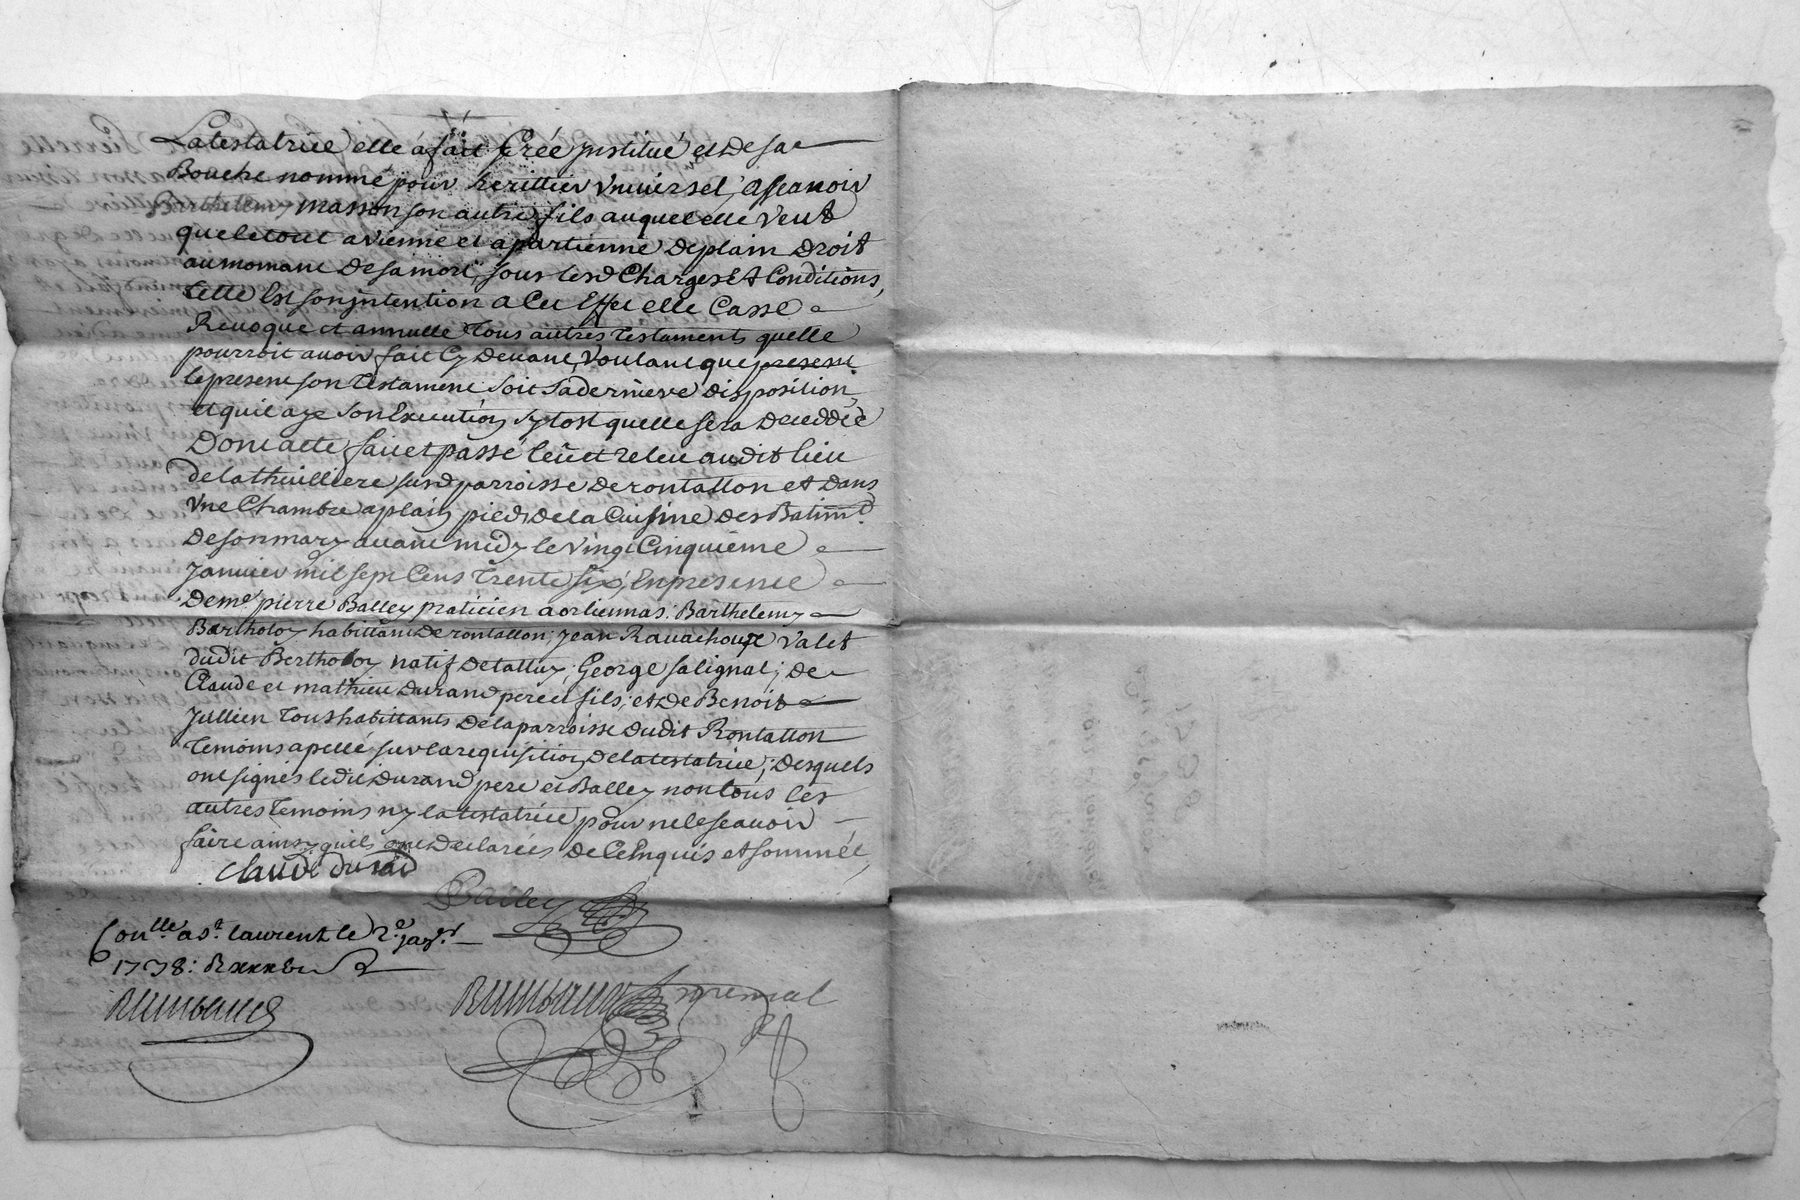 La testatrice elle á fait Créé jnstitué et De sa
Bouche nommé pour herittier Vniversel, ascauoir
Barthelemy masson son autre fils auquel elle Veut
que le tout avienne et apartienne De plain Droit
au momant De sa mort, sous lesd Charges Et Conditions,
Telle Est son jntention a Cet Effet elle Casse
Reuoque et annulle Tous autres Testaments quelle
pourroit auoir fait Cy Deuant, Voulant que
le present son Testament soit sa derniere disposition,
et quil aye son Execution sytost quelle sera Deceddée
Dont acte fait et passé leu et releu audit lieu
de la thuilliere sursd parroisse De rontallon et Dans
Vne Chambre a plain pied, De la Cuisine Des Batimts
De son mary auant midy le Vingt Cinquiéme
Januier mil sept Cens Trente six, En presence
De me pierre Balley praticien a orliennas. Barthelemy
Bartholoy habittant De rontallon; Jean Rauachoux Valet
dudit Bertholoy natif De talluy; George salignat; De
Claude et mathieu Durand pere et fils; et De Benoit
Jullien Tous habittants De la parroisse dudit Rontallon
Temoins apellé sur la requisition De la testatrice; Desquels
ont signés ledit Durand pere et Balley non tous les
autres Temoins ny la testatrice pour ne le scauoir
faire ainsy quils ont Declarées De Ce Enquis et sommée,
Claude durad
Balley
Conlle a st. laurent le 2e jaer.
1738: